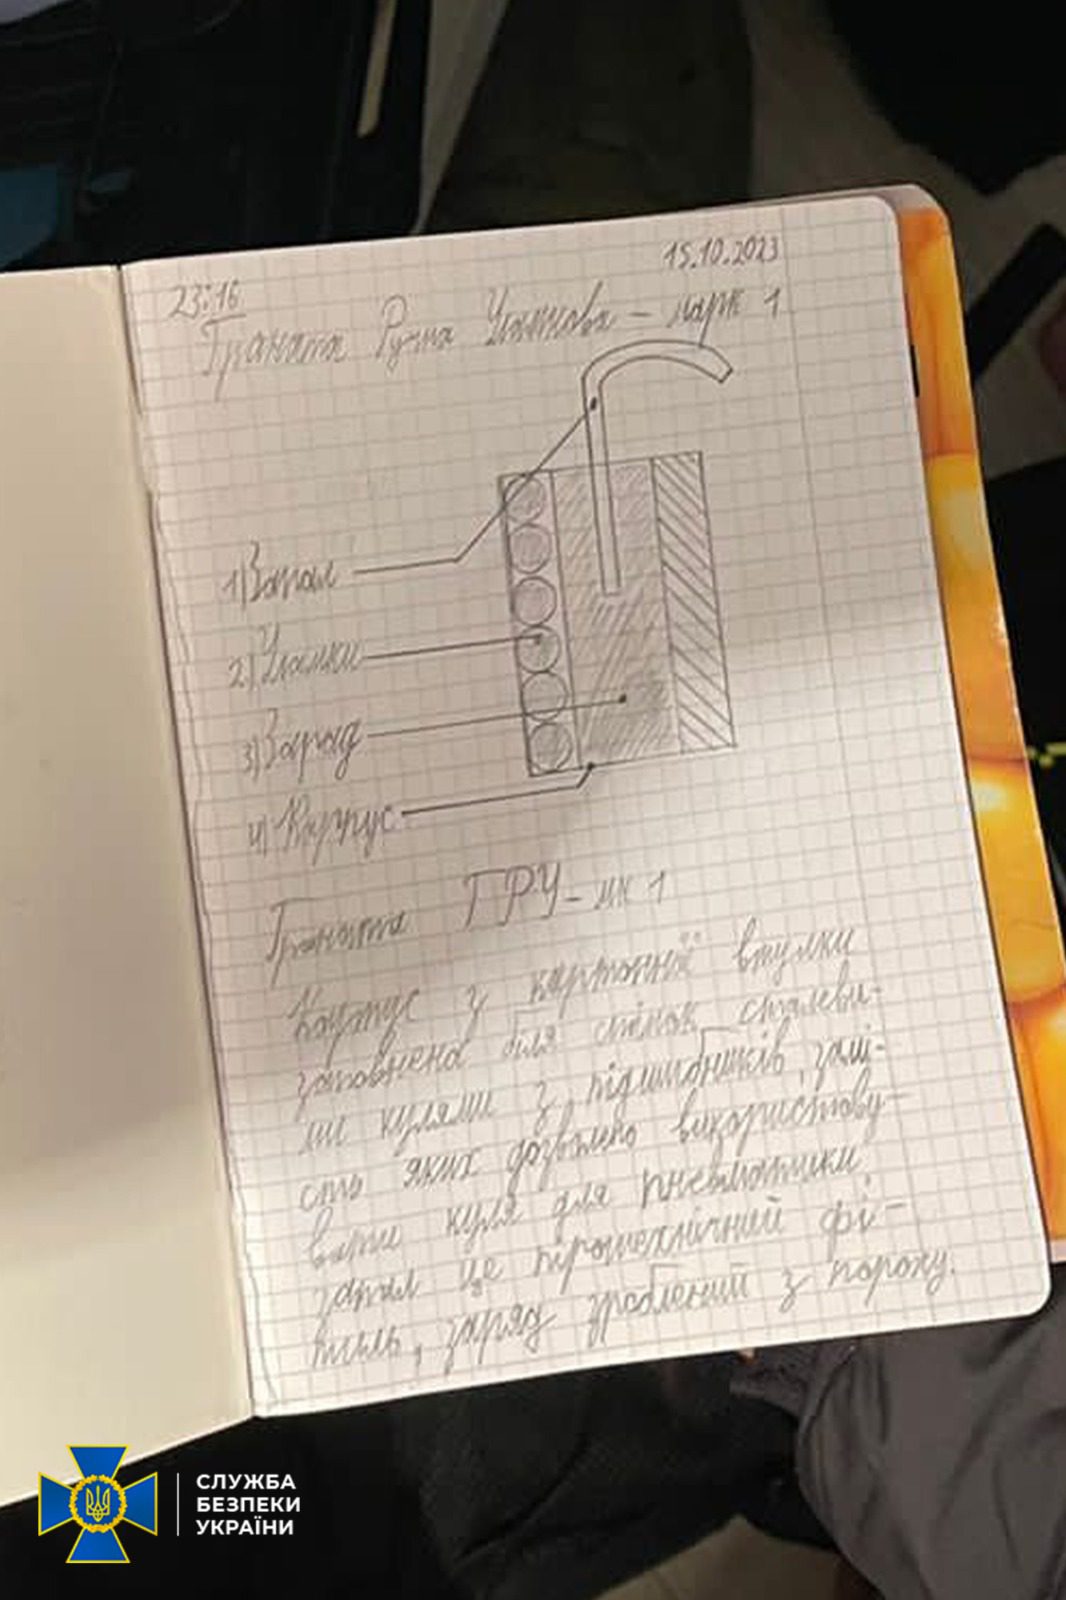 23:16
15.10.2023
Граната Ручна Уламкова - марк 1
1) Запал
2) Уламки
3) Заряд
4) Корпус
Граната ГРУ - мк 1
Корпус у картонній втулки
заповнена біля стінок сталеви-
ми кулями з підшибників, замі-
сто яких дозволено використову-
вати куля для пневматики
запал це піротехнічний фі-
тиль, заряд зроблений з пороху.
СЛУЖБА
БЕЗПЕКИ
УКРАЇНИ